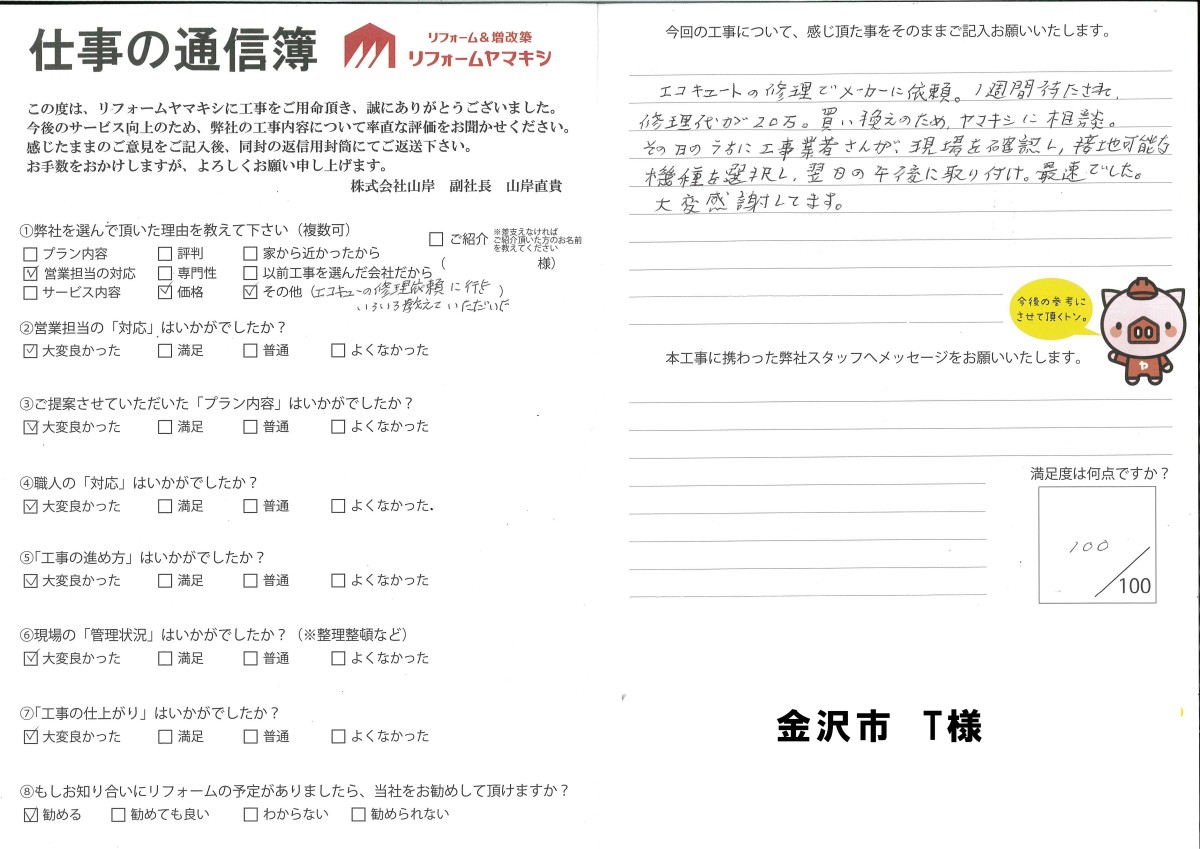 仕事の通信簿
リフォーム&増改築
リフォームヤマキシ
この度は、リフォームヤマキシに工事をご用命頂き、誠にありがとうございました。
今後のサービス向上のため、弊社の工事内容について率直な評価をお聞かせください。
感じたままのご意見をご記入後、同封の返信用封筒にてご返送下さい。
お手数をおかけしますが、よろしくお願い申し上げます。
株式会社山岸 副社長 山岸直貴
①弊社を選んで頂いた理由を教えて下さい(複数可)
□プラン内容 □評判 □家から近かったから
☑営業担当の対応 □専門性 □以前工事を選んだ会社だから
□サービス内容 ☑価格 ☑その他(エコキューの修理依頼に行き)
いろいろ教えていただいた
□ご紹介 ※差支えなければ
ご紹介頂いた方のお名前
を教えてください
( 様)
②営業担当の「対応」はいかがでしたか?
☑大変良かった □満足 □普通 □よくなかった
③ご提案させていただいた「プラン内容」はいかがでしたか?
☑大変良かった □満足 □普通 □よくなかった
④職人の「対応」はいかがでしたか?
☑大変良かった □満足 □普通 □よくなかった
⑤「工事の進め方」はいかがでしたか?
☑大変良かった □満足 □普通 □よくなかった
⑥現場の「管理状況」はいかがでしたか?(※整理整頓など)
☑大変良かった □満足 □普通 □よくなかった
⑦「工事の仕上がり」はいかがでしたか?
☑大変良かった □満足 □普通 □よくなかった
⑧もしお知り合いにリフォームの予定がありましたら、当社をお勧めして頂けますか?
☑勧める □勧めても良い □わからない □勧められない
今回の工事について、感じ頂た事をそのままご記入お願いいたします。
エコキュートの修理でメーカーに依頼。1週間待たされ、
修理代が20万。買い換えのため、ヤマキシに相談。
その日のうちに工事業者さんが、現場を確認し、接地可能な
機種を選択し、翌日の午後に取り付け。最速でした。
大変感謝してます。
今後の参考に
させて頂くトン。
ヤ
本工事に携わった弊社スタッフへメッセージをお願いいたします。
満足度は何点ですか?
100
/100
金沢市 T様